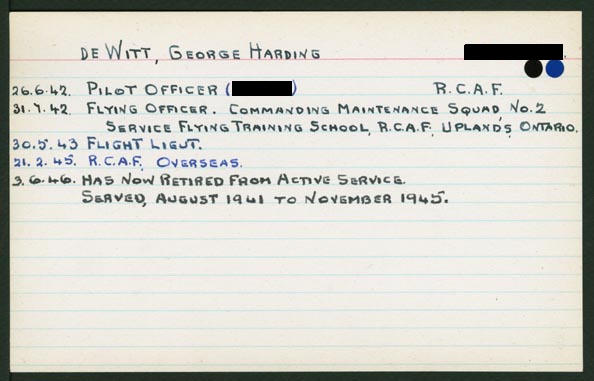 DE WITT, GEORGE HARDING
26.6.42. PILOT OFFICER ( ) R.C.A.F.
31.7.42. FLYING OFFICER. COMMANDING MAINTENANCE SQUAD, NO. 2
SERVICE FLYING TRAINING SCHOOL, R.C.A.F. UPLANDS, ONTARIO.
30.5.43 FLIGHT LIEUT.
21.2.45. R.C.A.F. OVERSEAS.
3.6.46. HAS NOW RETIRED FROM ACTIVE SERVICE.
SERVED, AUGUST 1941 TO NOVEMBER 1945.